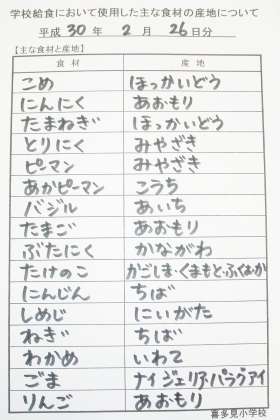 学校給食において使用した主な食材の産地について
平成 30 年 2 月 26 日分
【主な食材と産地】
食材 産地
こめ ほっかいどう
にんにく あおもり
たまねぎ ほっかいどう
とりにく みやざき
ピーマン みやざき
あかピーマン こうち
バジル あいち
たまご あおもり
ぶたにく かながわ
たけのこ かごしま・くまもと・ふくおか
にんじん ちば
しめじ にいがた
ねぎ ちば
わかめ いわて
ごま ナイジェリア・パラグアイ
りんご あおもり
喜多見小学校